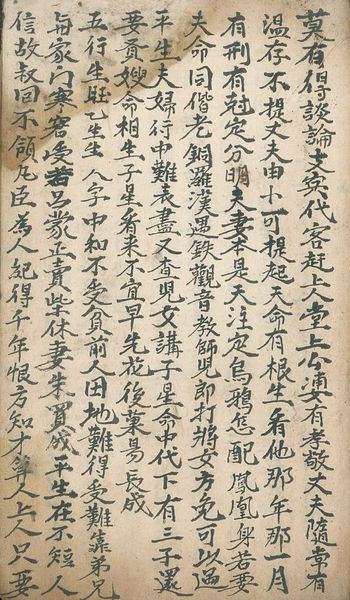 莫有得談論支賓代客赶上大堂上公婆有孝敬丈夫隨常有
温存不提丈夫由小可提起天命有根生看他那年那一月
有刑有冠定分明夫妻本是天注定烏鴉怎配鳳凰身若要
夫命同偕老銅羅漢遇鉄觀音教師児即打將女方免可以過
平生夫婦行中難表盡又查児女講子星命中代下有三子還
要貢嫂命相生子星看来不宜早先花後菓易長成
五行生旺乙生生人字中和不受貧前人田地難得受難靠弟兄
毎家門寒窑受苦呂蒙正賣柴休妻朱買成平生在不短人
信故叔回不領凡臣為人紀得千年恨方知才算人上人只要